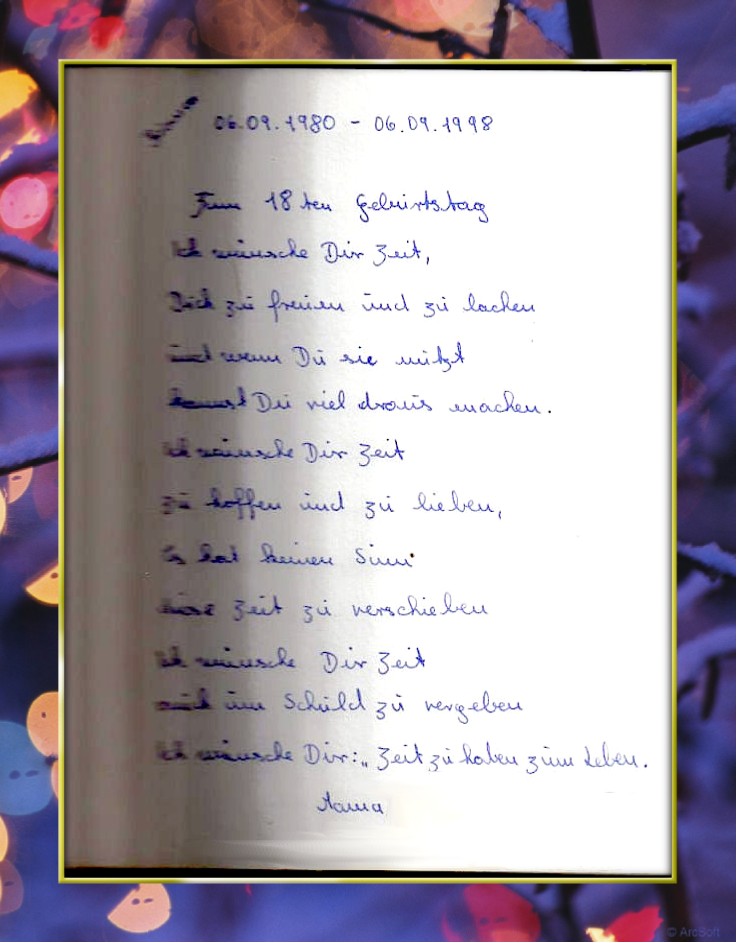 06.09.1980 - 06.09.1998
Zum 18ten Geburtstag
Ich wünsche Dir Zeit,
Dich zu freuen und zu lachen
und wenn Du sie nützt
kannst Du viel draus machen.
Ich wünsche Dir Zeit
zu hoffen und zu lieben,
Es hat keinen Sinn
diese Zeit zu verschieben
Ich wünsche Dir Zeit
auch um Schuld zu vergeben
Ich wünsche Dir: „Zeit zu haben zum Leben.
Mama
© ArcSoft